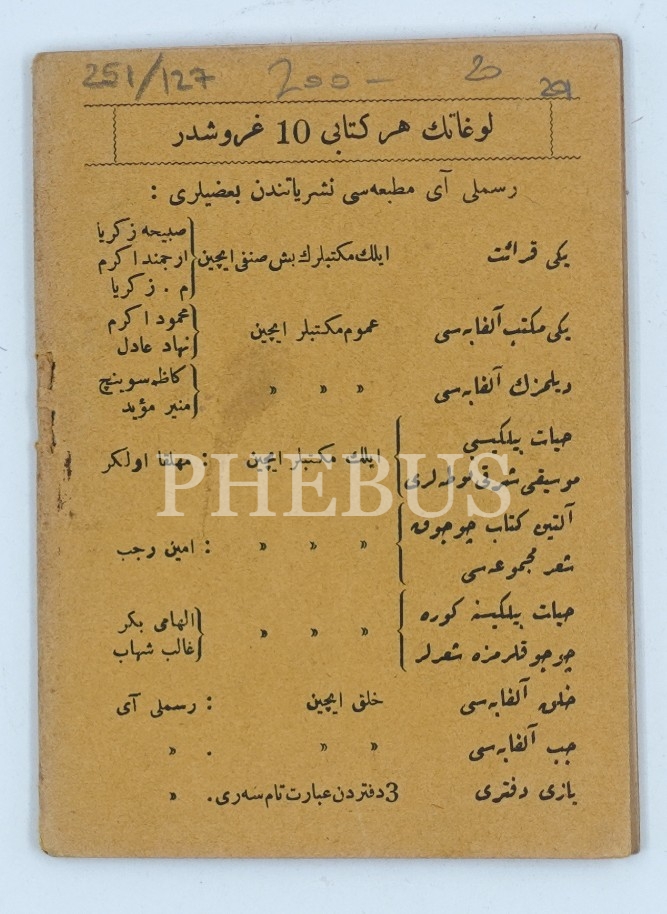 251/127 200- 20 201
لوغاتك هر كتابى 10 غروشدر
رسملى آى مطبعه‌سى نشرياتندن بعضيلرى :
يكى قرائت ايلك مكتبلرك بش صنفى ايچين صبيحه زكريا
ارجمند اكرم
م . زكريا
يكى مكتب آلفابه‌سى عموم مكتبلر ايچين محمود اكرم
نهاد عادل
ديلمزك آلفابه‌سى » » » كاظم سوينچ
منير مؤيد
حيات بيلكيسى
موسيقى شرقى نوطه‌لرى ايلك مكتبلر ايچين : مهلقا اولكر
آلتين كتاب چوجوق
شعر مجموعه‌سى » » » : امين رجب
حيات بيلكيسنه كوره
چوجوقلرمزه شعرلر » » » الهامى بكر
غالب شهاب
خلق آلفابه‌سى خلق ايچين : رسملى آى
جب آلفابه‌سى » » . »
يازى دفترى 3 دفتردن عبارت تام سه‌رى . »
PHEBUS